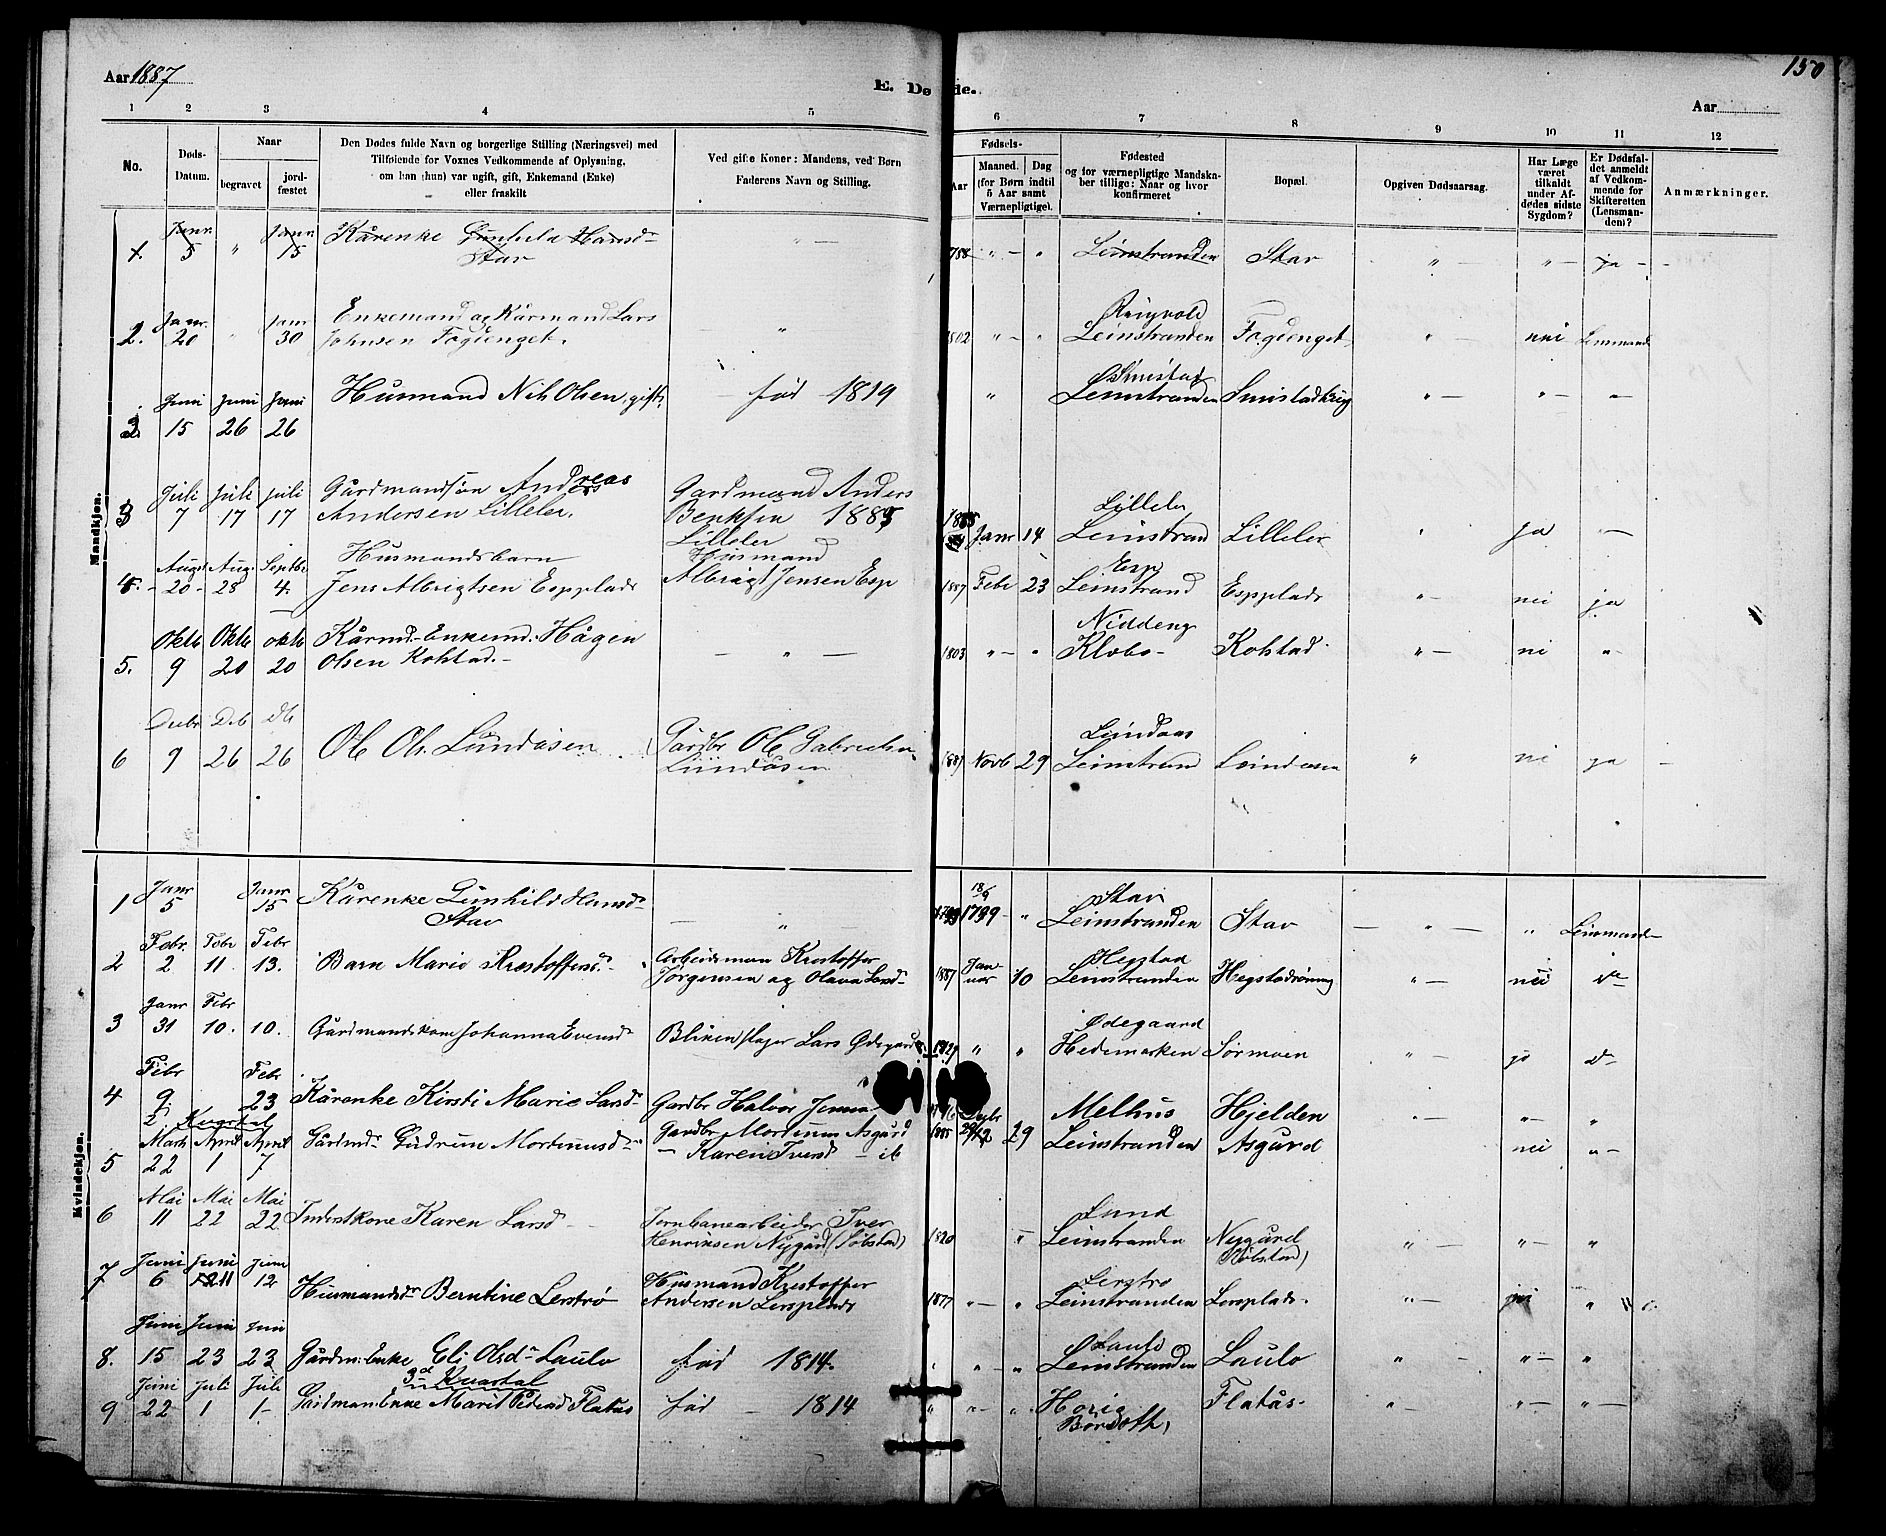 Aar 1887
E. Dø de.
150
Aar
1 2 3 4 5 6 7 8 9 10 11 12
No.
Døds-Datum.
Naar
begravet
jord-fæstet
Den Dødes fulde Navn og borgerlige Stilling (Næringsvei) med
Tilføiende for Voxnes Vedkommende af Oplysning,
om han (hun) var ugift, gift, Enkemand (Enke)
eller fraskilt
Ved gifte Koner: Mandens, ved Børn
Faderens Navn og Stilling.
Fødsels-
Aar
Maaned. Dag
(for Børn indtil
5 Aar samt
Værnepligtige).
Fødested
og for værnepligtige Mandska-
ber tillige: Naar og hvor
konfirmeret
Bopæl.
Opgiven Dødsaarsag.
Har Læge
været
tilkaldt
under Af-
dødes sidste
Sygdom?
Er Dødsfal-
det anmeldt
af Vedkom-
mende for
Skifteretten
(Lensman-
den)?
Anmærkninger.
Mandkjøn.
1. Janr. 5 " Janr. 15 Kårenke Gunhild Hansdr Stav " — 1788 " — " Leinstranden Stav " — " — ja — —
2. Janr. 20 " Janr 30 Enkemand og Kårmand Lars
Johnsen Fogdenget. " 1802 " — " Leinstranden Fogdenget " — nei Lensmand
3. Juni 15 Juni 26 Juni 26 Husmand Nils Olsen, gift. født 1819 " Smistad Leinstranden " — " — " —
3 Juli 7 Juli 17 Juli 17 Gårdmandsøn Andreas
Andersen Lilleler. Gardmand Anders
Benktsen 1885
Lilleler 1885 Janr 14 Lilleler Leinstrand Lilleler " ja " —
4. Aug. 20 Aug. 28 Septbr. 4. Husmandsbarn
Jens Albrigtsen Espplads Husmand
Albrigt Jensen Esp 1887 Febr 23 Esp Leinstrand Espplads " — nei ja
5. Oktb 9 Oktb 20 oktb 20 Kårmd. Enkemd. Hågen
Olsen Kolstad. — — " — 1803 " — " Klæbo — Kolstad " — nei "
6 Decbr 9 Deb 26 26 Ole Ols. Lundåsen Gårdbr Ole Gabrielsen
Lundåsen 1887 Novb 29 Leinstrand " nei ja —
Kvindekjøn.
1 Janr 5 Janr 15 Kårenke Gunhild Hansdr
Stav — " 18/9 1789 — " Stav Leinstranden Stav — " — " Lensmand —
2 Febr. 2 Febr 11 Febr 13. Barn Marie Kristoffersdr. Arbeidsman Kristoffer
Jørgensen og Olava Larsdr 1887 Januar 10 Hegstad Leinstranden " — nei do
3 Janr 31 Febr 10. 10. Gårdmandskone Johanna Evensdr Blikenslager Lars Ødegård 1829 " " Ødegaard Hedemarken Sørmoen " — ja do
4 Febr 9 Febr 23 Kårenke Kirsti Marie Larsdr Gardbr Halvor Jensen Melhus Hjelden " — " — "
2. Kvartal
5 Marts 22 April 1 April 7 Gårdmdr Gudrun Mortinusdr Gardbr Mortinus Asgård
— Karen Iversdr — ib 1885 29/12 29 Leinstranden Asgård nei " —
6 Mai 11 Mai 22 Mai 22 Inderstkone Karen Larsd — Jernbanearbeider Iver
Henriksen Nygård (Sølstad) 1820 " Lund Leinstranden Nygård
(Kolstad) " — " — "
7 Juni 6 Juni 11 Juni 12 Husmandsdr Berntine Lerstrø Husmand Kristoffer
Andersen Lersplads 1877 " — " Lerstrø Leinstranden Lersplads. " — "
8. Juni 15 Juni 23 Juni 23 Gårdm. Enke Eli Olsdr Laulo født 1814. " " — " Laulo Leinstranden Laulo " — " — "
3d Kvartal
9 Juni 22 Juli 1 Juli 1 — Gårdman. Enke Marit Pedersd Flatås født — 1814 " " — " Børseth, Flatås — " — " — " —